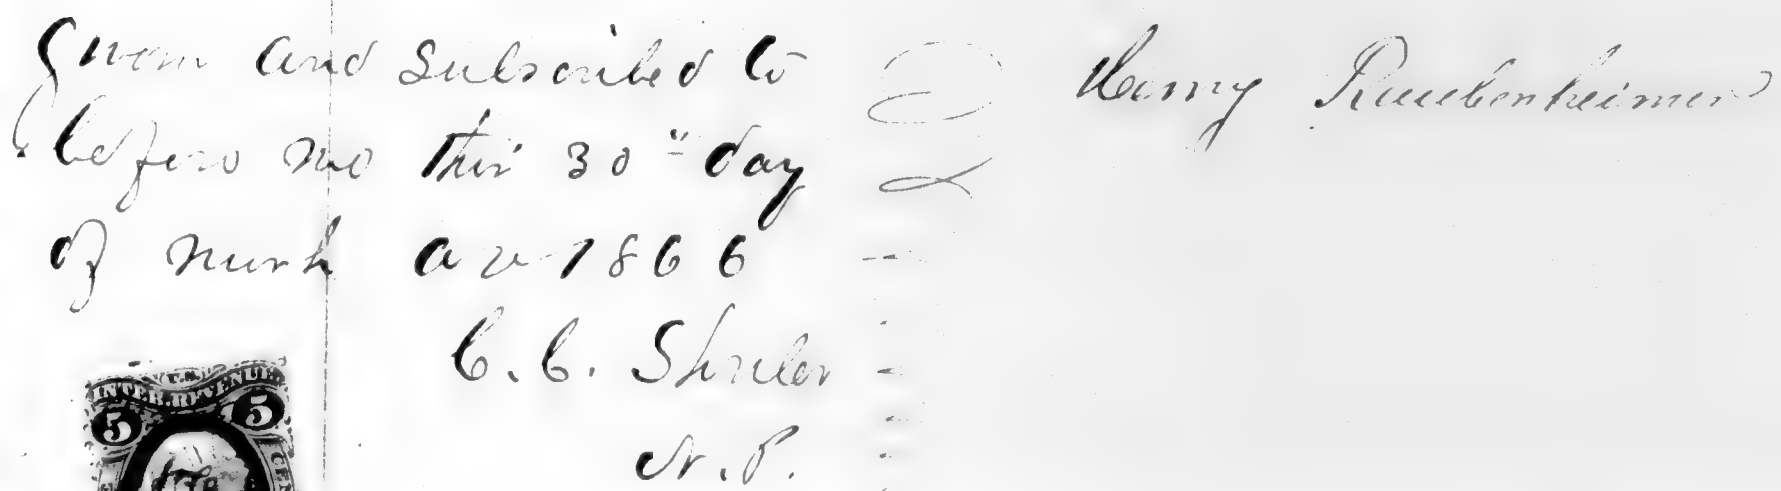 Sworn and Subscribed to
before me this 30" day
of March AD 1866
C. C. Shuler
N. P.
Henry Raubenheimer
U.S.
INTER. REVENUE
5 5
CEN